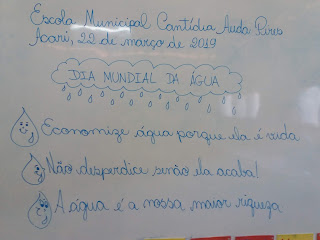 Escola Municipal Cantídia Auda Pires
Acari, 22 de março de 2019
DIA MUNDIAL DA ÁGUA
Economize água porque ela é vida
Não desperdice senão ela acaba!
A água é a nossa maior riqueza